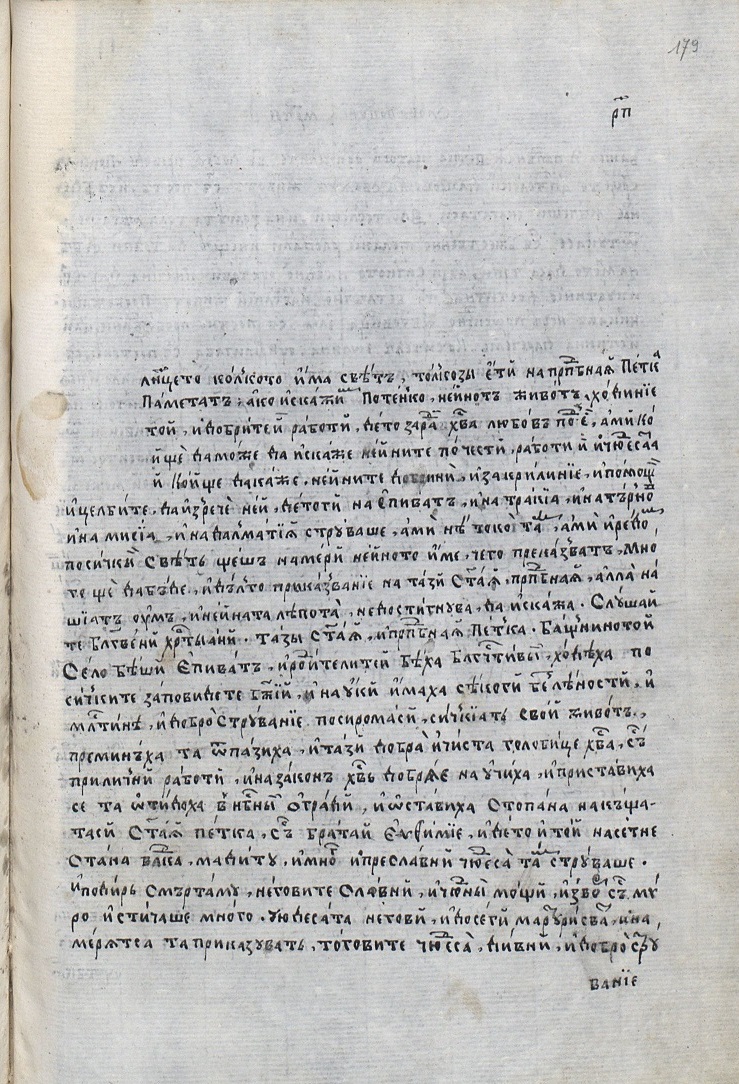 179
р҃п
лицето колкото има светъ, толкозы ети на прпⷣбнаѧ Петка
Паметатъ, ако искажи потенко, нейнотъ животъ, ходиние
той, и добритей работи, дето заради хв҃а любовъ, ами ко
й ще да може да искаже нейните почести, работи и чюдеса
й койще да каже, нейните добрини, и закрилиние, и помощ
и целбите, да изрече ней, детоги на Епиватъ, и на тракїа, и на търно
и на мисїа, и на далматїѧ струваше, ами не токо та, ами и редо
посички светъ щешъ намери нейното име, чето преказватъ, мно
го ще да бъде, и дълго приказванїе на тази Ст҃аѧ, прпⷣбнаѧ, алла на
шїатъ оумъ, и нейната лепота, недостигнува, да искажа. Слушай
те блгⷭвени хрⷭтїани. тазы Ст҃аѧ, и прпⷣбнаѧ Петка. Бащнинотой
Село беши Епиватъ, и родителитей бѣха блгочⷭтивы, ходѣха по
сичките заповидете бж҃ии, и науки имаха секоги, и
млⷭтинѣ, и добро Струванїе посиромаси, сичкїатъ свой животъ,
преминъха та ѿпазиха, и тази добра и чиста голобище хв҃а, съ
прилични работи, и на законъ хв҃ъ добрѧе научиха, и приставиха
се та ѿтидоха въ нбⷭны огради, и ѡставиха Стопана на къща-
таси Ст҃аѧ петка, съ братаи Еѵѳимїе, и дето и той насетне
Стана влⷣка, мадиту, и много и преславни чюдеса тамъ струваше.
и подирь Смъртаму, неговите Славни, и чюдны мощи, изво съ му
ро и стичаше много. чюдесата негови, и досеги, и на
мерѧтса та приказуватъ, тоговите чюдеса, дивни, и добро стру
ванїе